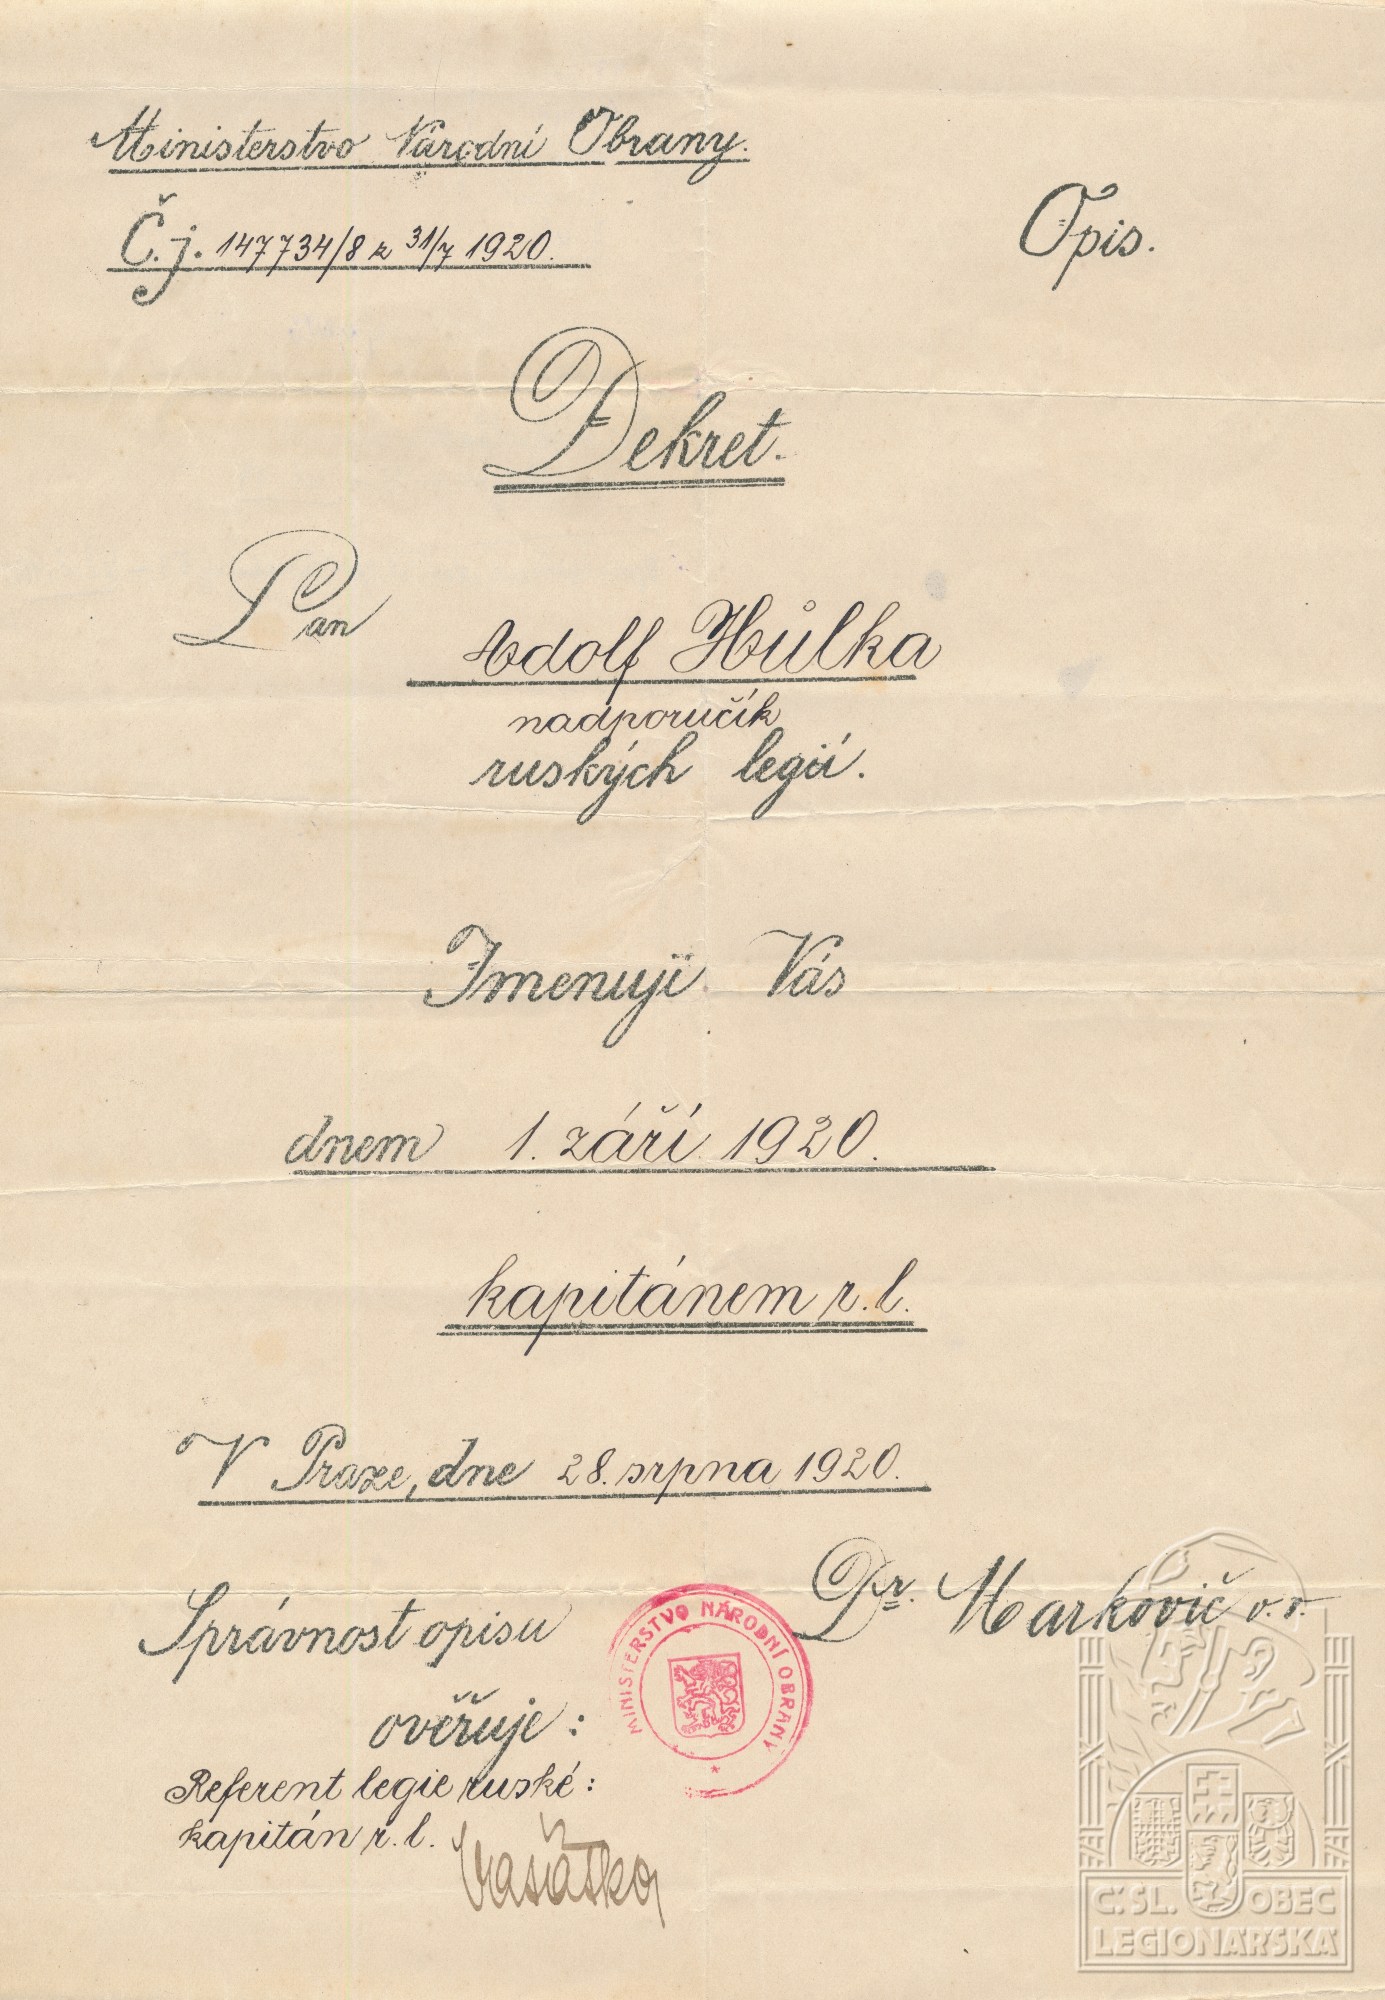 Ministerstvo Národní Obrany.
Č.j. 147734/8 z 31/7 1920.
Opis.
Dekret.
Pan
Adolf Hůlka
nadporučík
ruských legií.
Jmenuji Vás
dnem 1. září 1920.
kapitánem r. l.
V Praze, dne 28. srpna 1920.
Dr. Markovič v. r.
Správnost opisu
ověřuje:
Referent legie ruské:
kapitán r. l.
MINISTERSTVO NÁRODNÍ OBRANY
Č.SL. OBEC
LEGIONÁŘSKÁ